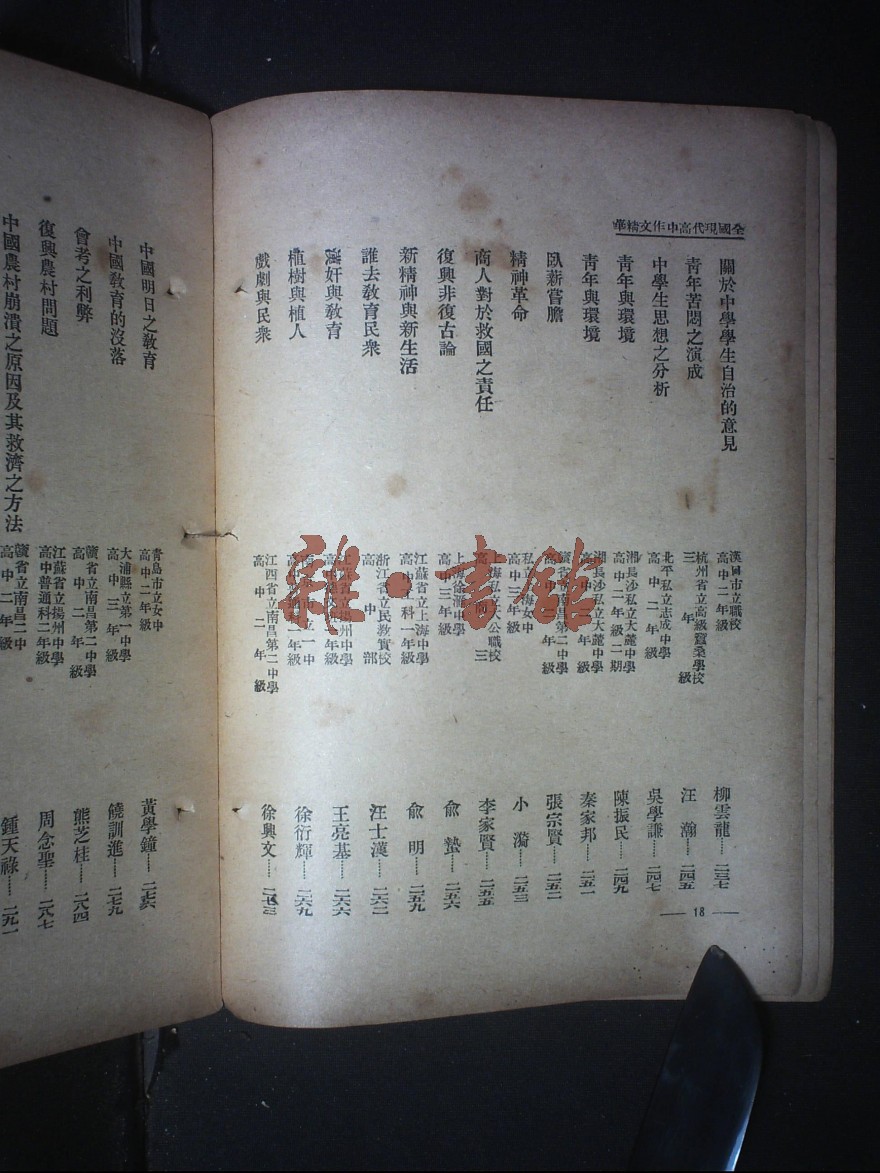 全國現代高中作文精華
關於中學學生自治的意見 漢口市立職校 高中二年級 柳雲龍…… 二三七
青年苦悶之演成 杭州省立高級蠶桑學校 三年級 汪瀚…… 二四五
中學生思想之分析 北平私立志成中學 高中二年級 吳學謙…… 二四七
青年與環境 湘長沙私立大麓中學 高中二年級二期 陳振民…… 二四九
青年與環境 湖長沙私立大麓中學 高中二年級 秦家邦…… 二五一
臥薪嘗膽 第二中學 高中二年級 張宗賢…… 二五二
精神革命 私立 海女中 高中三年級 小漪…… 二五三
商人對於救國之責任 上海私立大公職校 高 三 李家賢…… 二五五
復興非復古論 上海徐滙中學 高中三年級 俞蟄…… 二五六
新精神與新生活 江蘇省立上海中學 高中 科一年級 俞明…… 二五九
誰去教育民衆 浙江省立民教實校 高中部 汪士漢…… 二六二
漢奸與教育 江蘇省立揚州中學 高中 二年級 王亮基…… 二六六
植樹與植人 市立一中 高中 二年級 徐衍輝…… 二六九
戲劇與民衆 江西省立南昌第二中學 高中二年級 徐興文…… 二七三
— 18 —
中國明日之教育 青島市立女中 高中二年級 黃學鐘…… 二七六
中國教育的沒落 大浦縣立第一中學 高中三年級 饒訓進…… 二七九
會考之利弊 贛省立南昌第二中學 高中二年級 熊芝桂…… 二八四
復興農村問題 江蘇省立揚州中學 高中普通科二年級 周念聖…… 二八七
中國農村崩潰之原因及其救濟之方法 贛省立南昌二中 高中二年級 鍾天祿…… 二九一
雜·書館